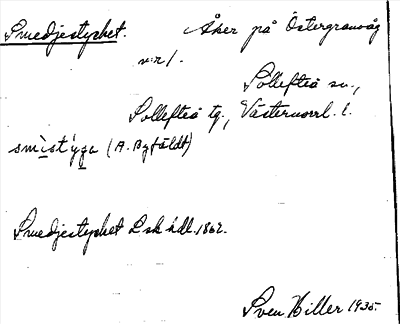 Smedjestycket. Åker på Östergranvåg
nr 1.
Sollefteå sn.,
Sollefteå tg., Västernorrl. l.
(A. Byfäldt)
Smedjestycket Lsk hdl. 1862.
Sven Hiller 1935.